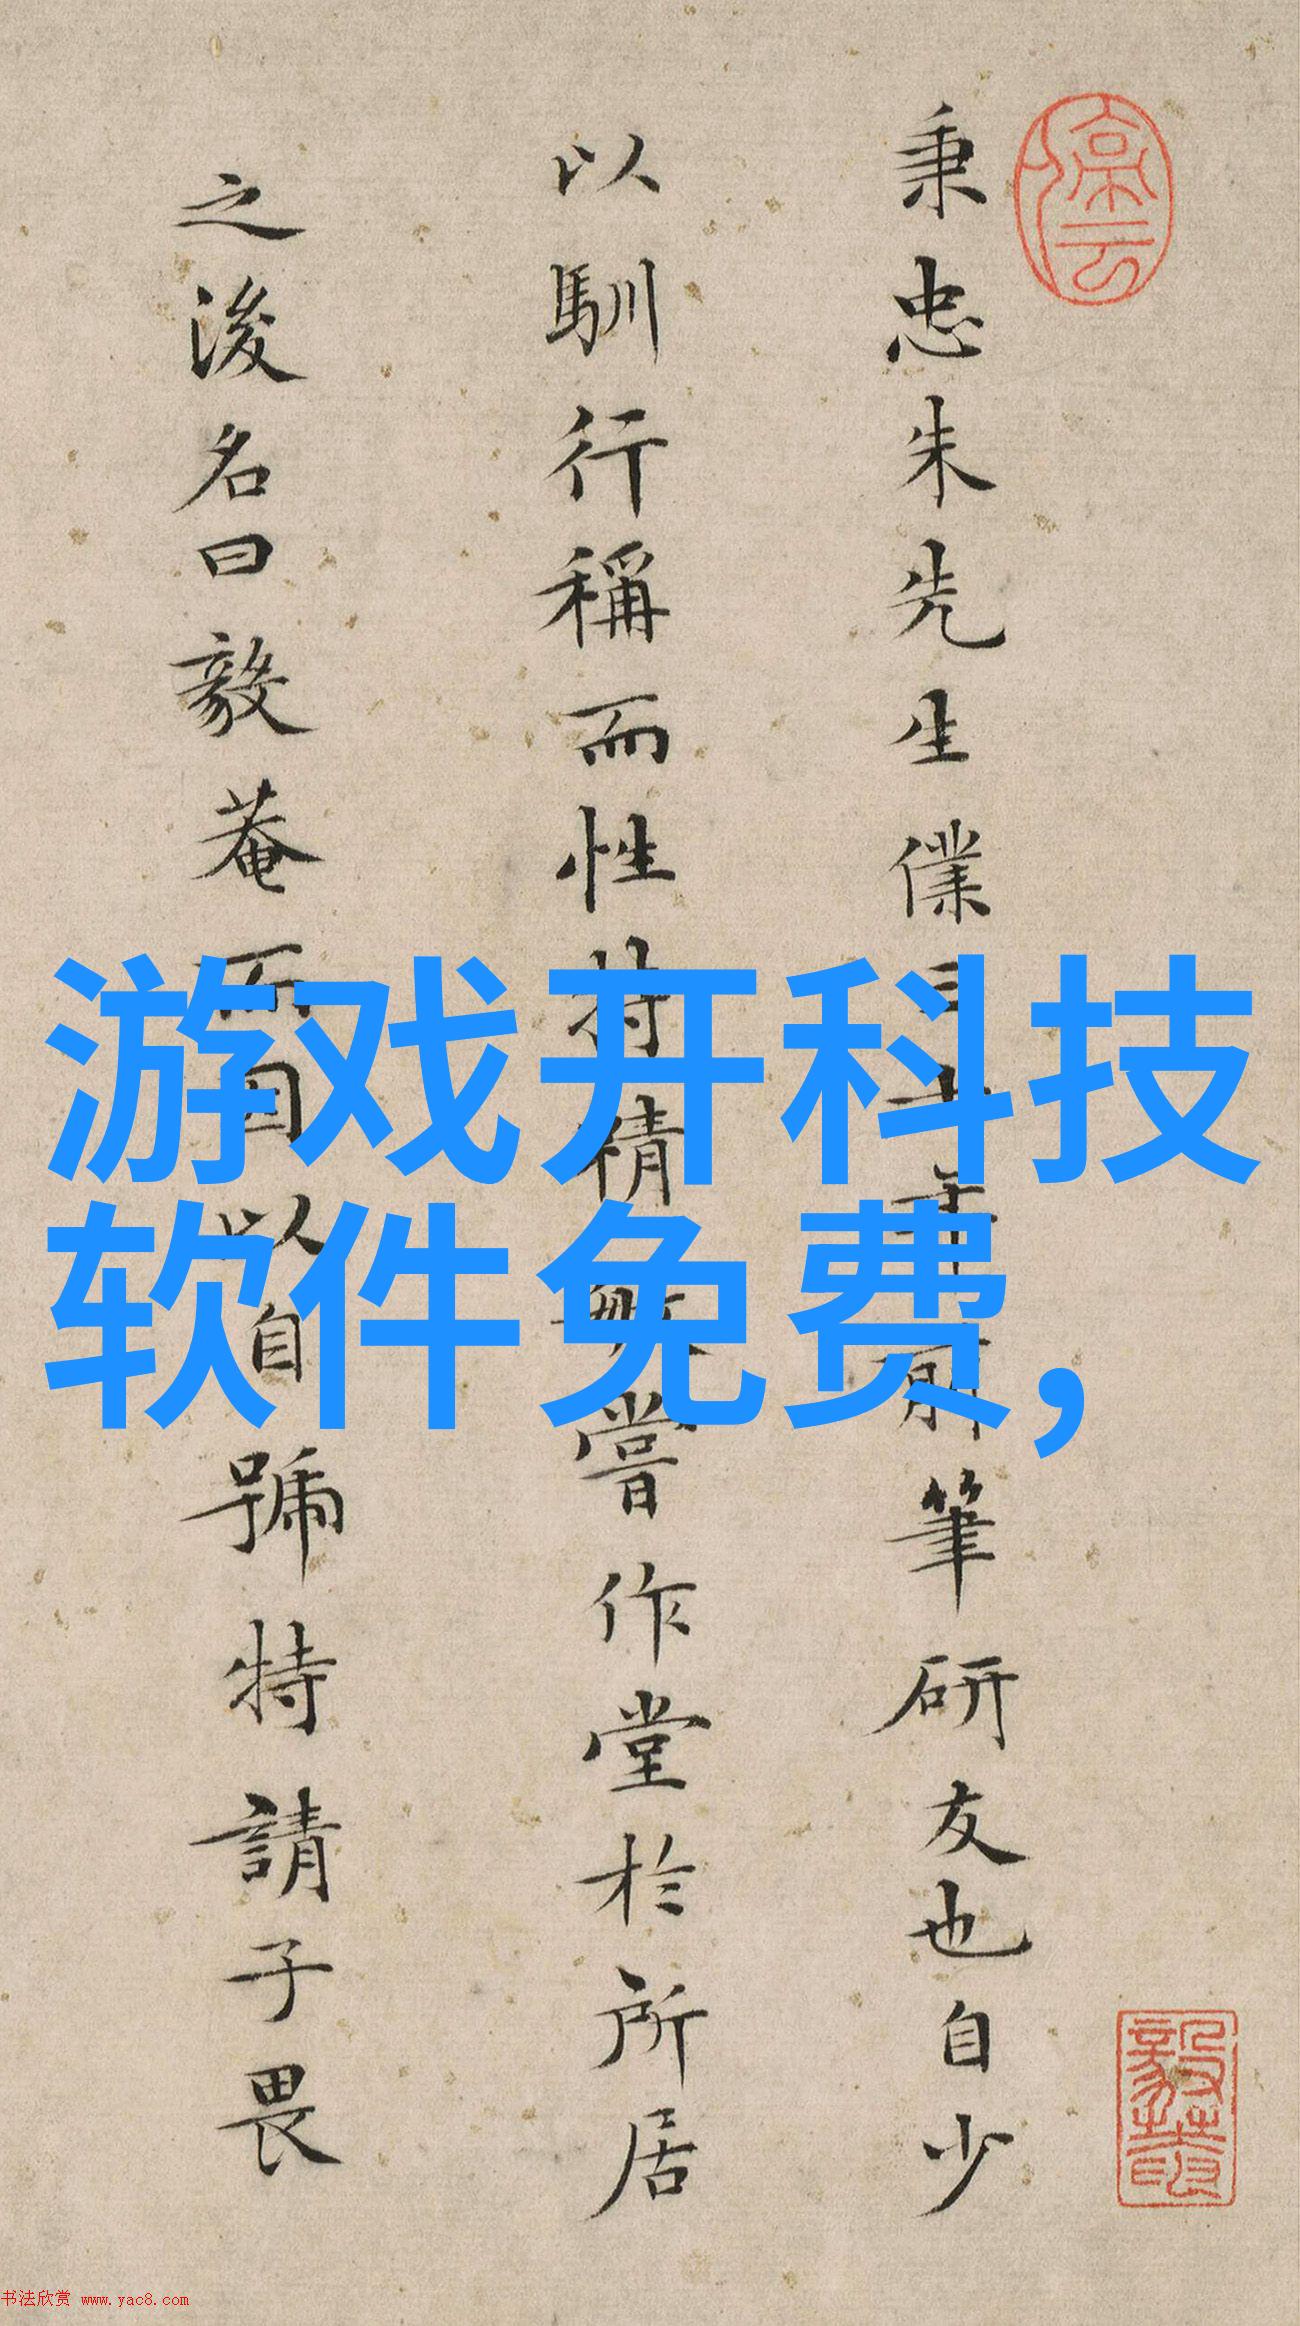 秉忠朱先生僕曰十年前筆研友也自少
以馴行稱而性持精無嘗作堂於所居
之後名曰毅菴而因以自號特請予畏
游戏开科技
软件免费,
书法欣赏 www.yac8.com